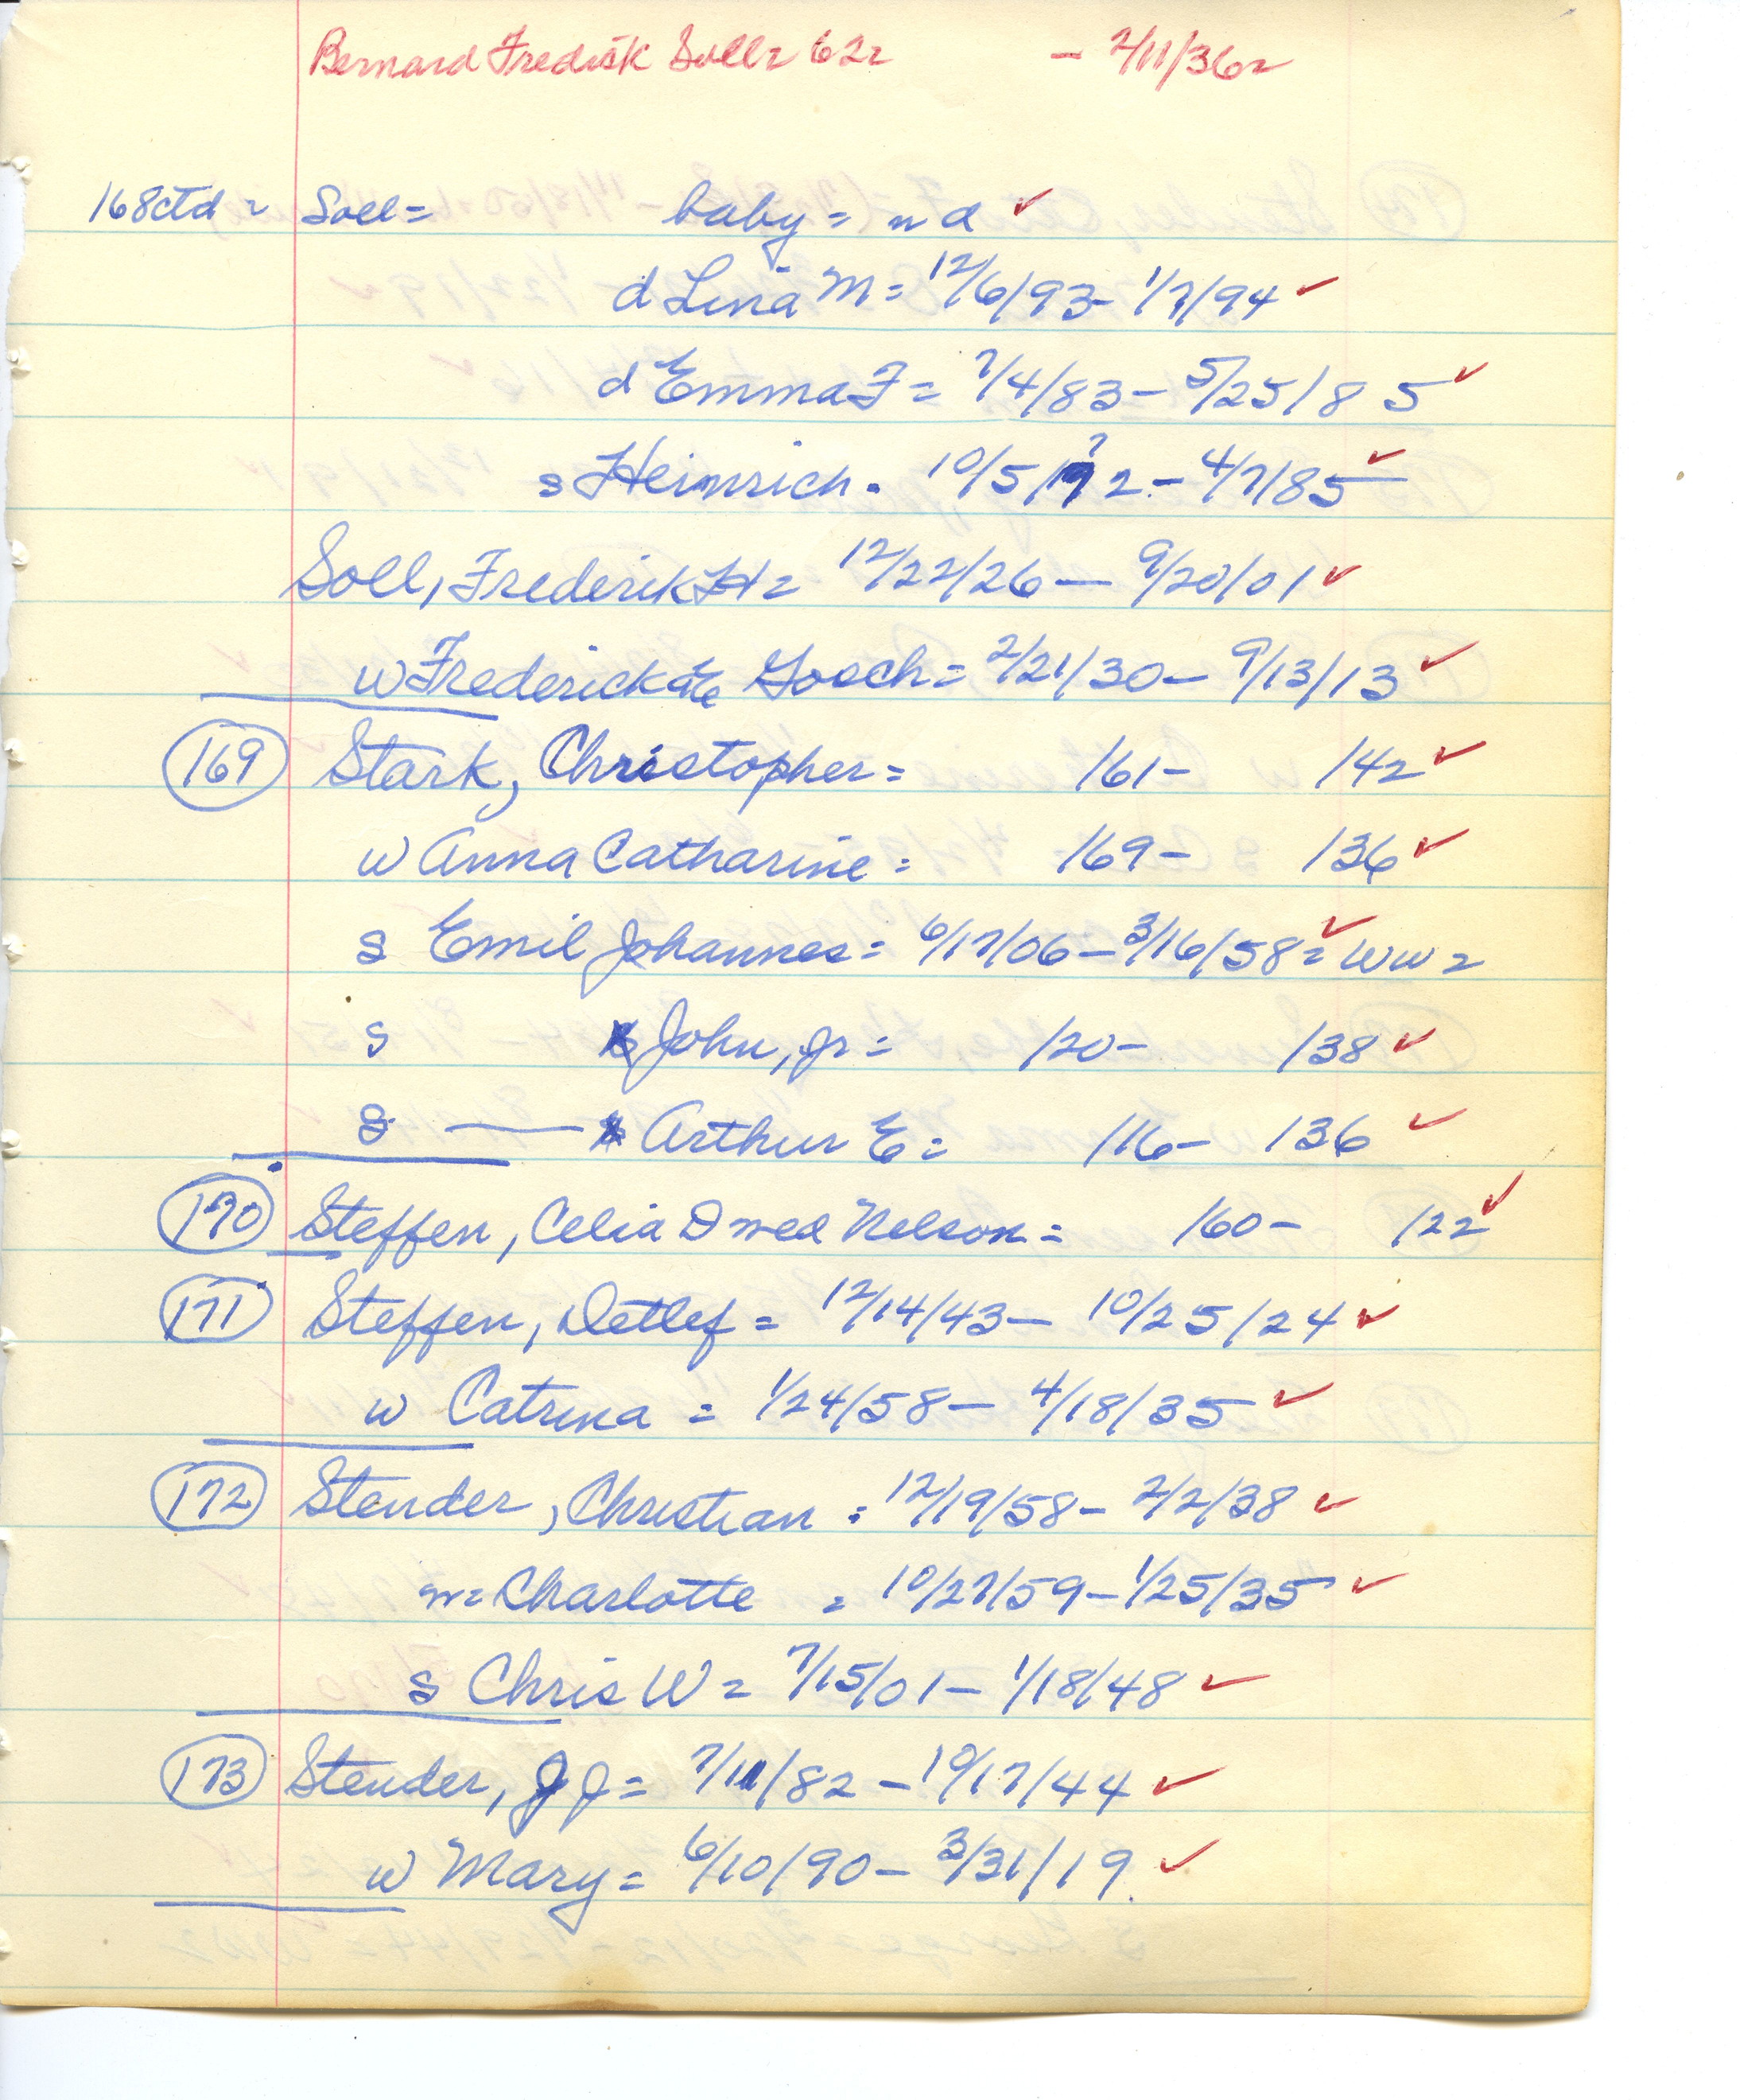 Bernard Fredrik Soll = 62 = - 2/11/36 =
168ctd = Soll = baby = nd ✓
d Lina M = 12/6/93 - 1/7/94 ✓
d Emma F = 7/4/83 - 5/25/85 ✓
s Heinrich. 10/5/ ? 2 - 4/7/85 ✓
Soll, Frederik H = 12/22/26 — 9/20/01 ✓
w Fredericka E Gosch = 2/21/30 - 9/13/13 ✓
169 Stark, Christopher = /61 - /42 ✓
w Anna Catharine = /69 - /36 ✓
s Emil Johannes = 6/17/06 - 3/16/58 = ✓ WW2
s John, Jr = /20 - /38 ✓
s — Arthur E = /16 - /36 ✓
170 Steffen, Celia D wed Nelson = /60 - /22 ✓
171 Steffen, Detlef = 12/14/43 - 10/25/24 ✓
w Catrina = 1/24/58 - 4/18/35 ✓
172 Stender, Christian = 12/19/58 - 2/2/38 ✓
w = Charlotte = 10/27/59 - 1/25/35 ✓
s Chris W = 7/15/01 - 1/18/48 ✓
173 Stender, J J = 7/11/82 - 10/17/44 ✓
w Mary = 6/10/90 - 3/31/19. ✓